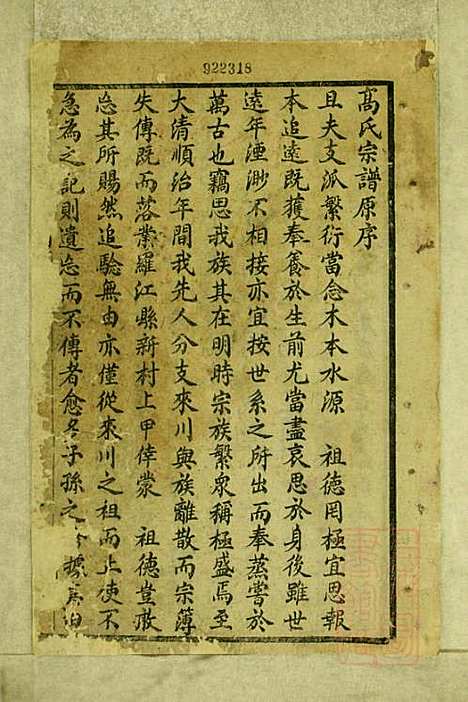 922318
高氏宗譜原序
且夫支派繁衍當念木本水源　祖德罔極宜思報
本追遠既獲奉養於生前尤當盡哀思於身後雖世
遠年湮渺不相接亦宜按世系之所出而奉蒸嘗於
萬古也竊思我族其在明時宗族繁衆稱極盛焉至
大清順治年間我先人分支來川與族離散而宗簿
失傳既而落業羅江縣新村上甲倖蒙　祖德豈敢
忘其所賜然追驗無由亦僅從來川之祖而止使不
急為之記則遺忘而不傳者愈多子孫之